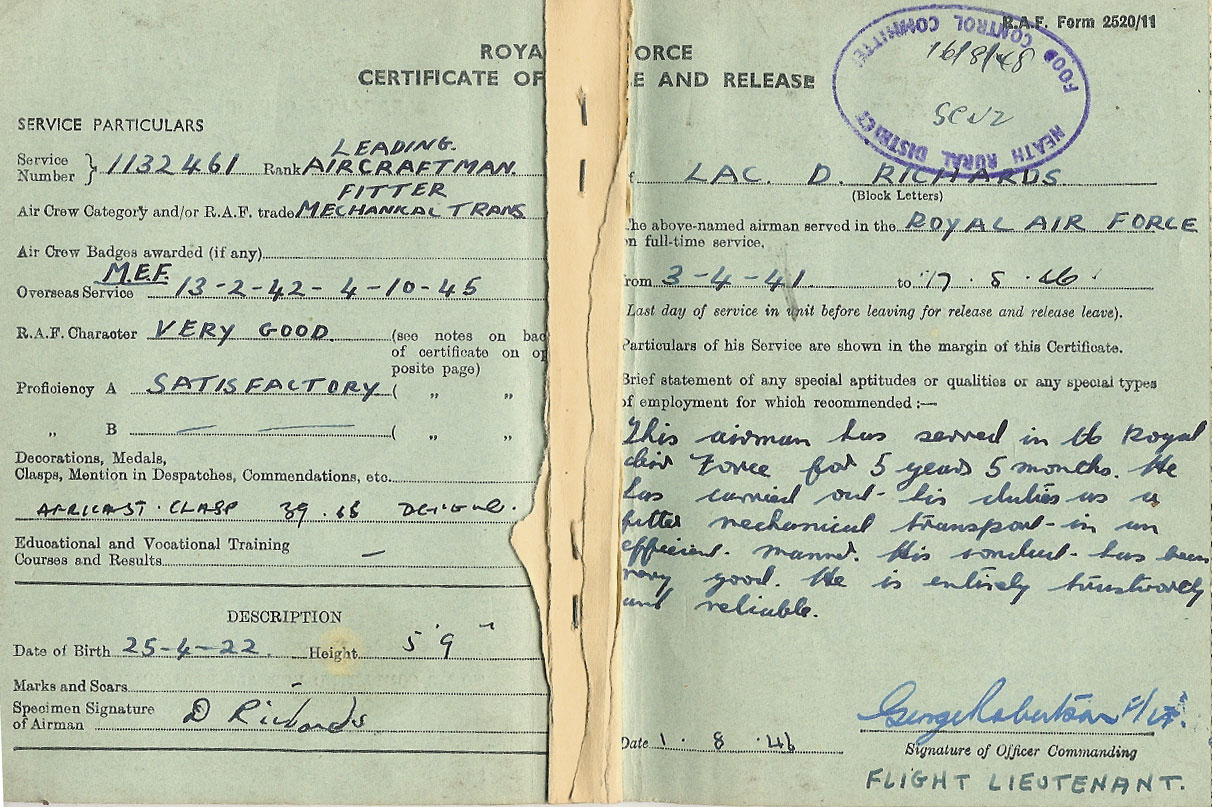 SERVICE PARTICULARS
Service Number } 1132461 Rank LEADING. AIRCRAFTMAN.
Air Crew Category and/or R.A.F. trade FITTER MECHANICAL TRANS
Air Crew Badges awarded (if any)
M.E.F.
Overseas Service 13-2-42- 4-10-45
R.A.F. Character VERY GOOD (see notes on bac
of certificate on op
posite page)
Proficiency A SATISFACTORY ( „ „
„ B — — ( „ „
Decorations, Medals,
Clasps, Mention in Despatches, Commendations, etc.
CLASP 39.
Educational and Vocational Training
Courses and Results —
DESCRIPTION
Date of Birth 25-4-22. Height 5' 9"
Marks and Scars -
Specimen Signature
of Airman D Richards
R.A.F. Form 2520/11
ROYA ORCE
CERTIFICATE OF E AND RELEASE
FOOD CONTROL COMMITTEE
NEATH RURAL DISTRICT
16/8/48
LAC. D. RICHARDS
(Block Letters)
he above-named airman served in the ROYAL AIR FORCE
n full-time service.
rom 3-4-41. to 17.8.46
Last day of service in unit before leaving for release and release leave).
Particulars of his Service are shown in the margin of this Certificate.
Brief statement of any special aptitudes or qualities or any special types
of employment for which recommended :—
This airman has served in the Royal
Air Force for 5 years 5 months. He
has carried out his duties as a
fitter mechanical transport in an
efficient manner. His conduct has been
very good. He is entirely trustworthy
and reliable.
George Robertson F/Lt.
Date 1.8.46
Signature of Officer Commanding
FLIGHT LIEUTENANT.